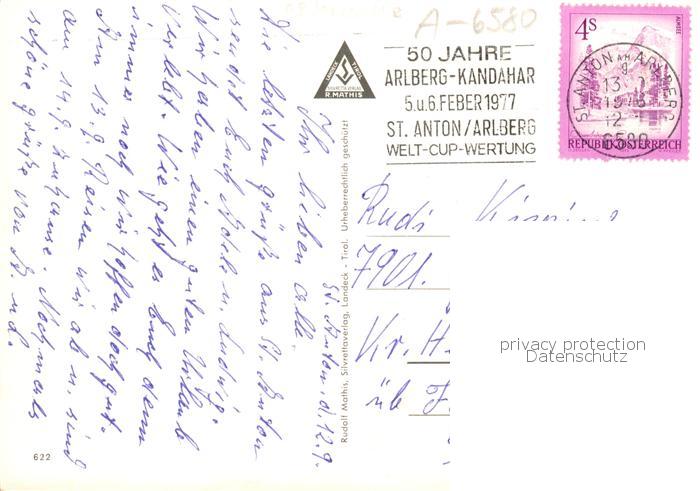 A-6580
50 JAHRE
ARLBERG-KANDAHAR
5.u.6.FEBER 1977
ST. ANTON/ARLBERG
WELT-CUP-WERTUNG
4S
ALMSEE
REPUBLIK ÖSTERREICH
ST. ANTON AM ARLBERG
13
12
6580
LANDECK TIROL
SILVRETTA VERLAG
R.MATHIS
Rudolf Mathis, Silvrettaverlag, Landeck - Tirol. Urheberrechtlich geschützt
St. Anton, d. 12.9.
Ihr lieben alle.
Die letzten grüße aus St. Anton
sendet Euch Adele u. Ludwig.
Wir haben einen guten Urlaub
verlebt. Wie geht es Euch denn
immer noch wir hoffen doch gut.
Am 13.9. Reisen wir ab u. sind
am 14.9. zuhause. Nochmals
schöne grüße von A. u. L.
Rudi
7901.
Kr. H
üb
privacy protection
Datenschutz
622